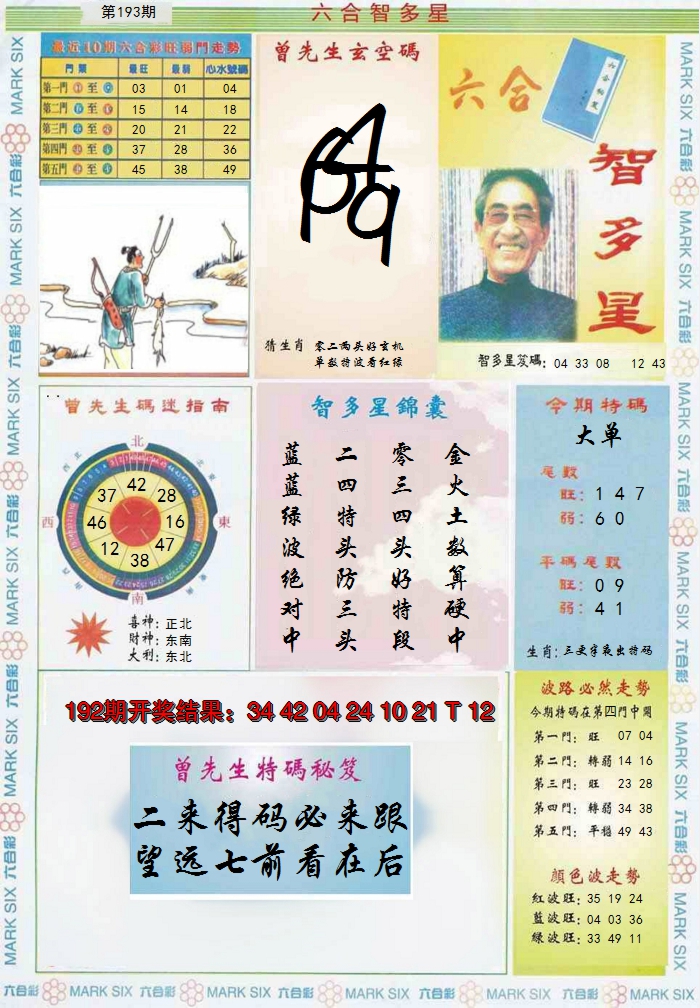 第193期
六合智多星
最近10期六合彩旺弱門走勢
門類 最旺 最弱 心水號碼
第一門 ① 至 ⑨ 03 01 04
第二門 至 15 14 18
第三門 至 20 21 22
第四門 至 37 28 36
第五門 至 45 38 49
曾先生玄空碼
猜生肖 零二两头好玄机
单数特波看红绿
六合
智多星
智多星笈碼: 04 33 08 12 43
曾先生碼迷指南
北
西
東
南
42
28
16
47
38
12
46
37
喜神: 正北
財神: 东南
大利: 东北
智多星錦囊
金火土数算硬中
零三四头好特段
二四特头防三头
蓝蓝绿波绝对中
今期特碼
大单
尾数
旺: 1 4 7
弱: 6 0
平碼尾数
旺: 0 9
弱: 4 1
生肖:三更字氣出特码
192期开奖结果: 34 42 04 24 10 21 T 12
曾先生特碼秘笈
二来得码必来跟
望远七前看在后
波路必然走勢
今期特碼在第四門中開
第一門: 旺 07 04
第二門: 轉弱 14 16
第三門: 旺 23 28
第四門: 轉弱 34 38
第五門: 平穩 49 43
顏色波走勢
紅波旺: 35 19 24
藍波旺: 04 03 36
綠波旺: 33 49 11
MARK SIX 六合彩